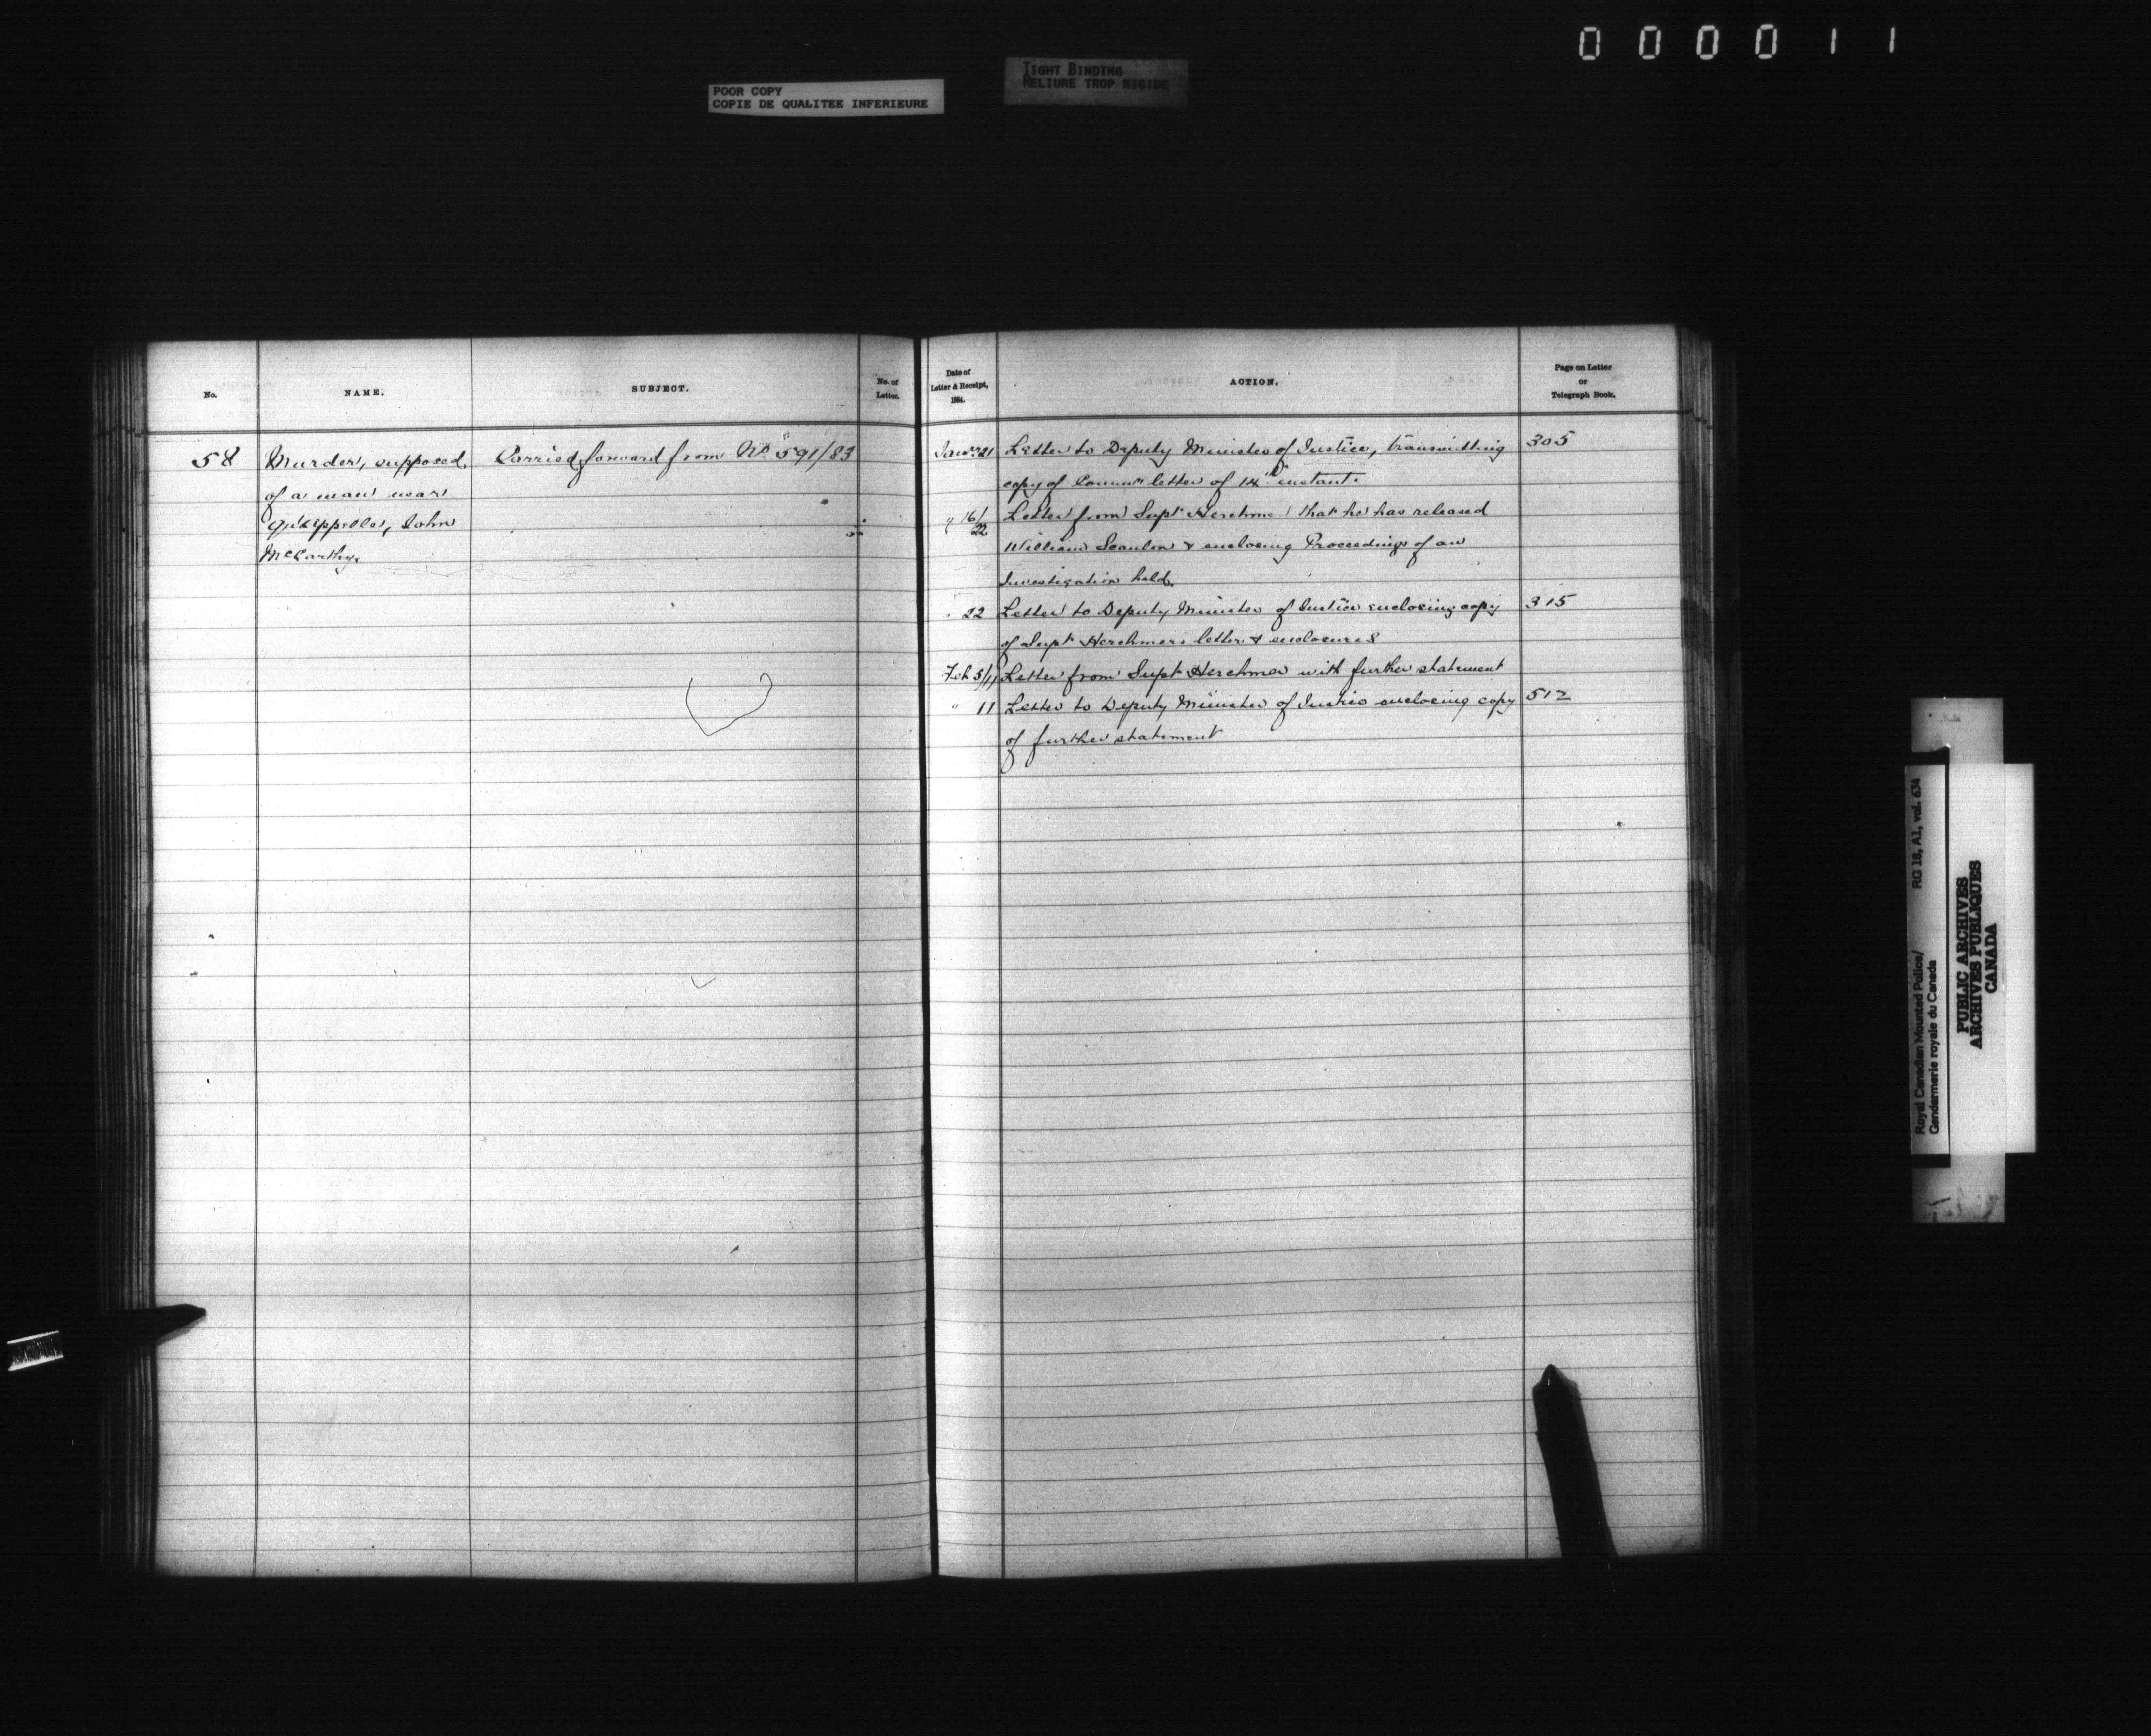 000011
POOR COPY
COPIE DE QUALITEE INFERIEURE
TIGHT BINDING
RELIURE TROP RIGIDE
No.
NAME.
SUBJECT.
No. of
Letter.
Date of
Letter & Receipt,
1884.
ACTION.
Page on Letter
or
Telegraph Book.
58
Murder, supposed,
of a man near
Qu'Appelle, John
McCarthy.
Carried forward from No. 591/83
Jany 21 Letter to Deputy Minister of Justice, transmitting 305
copy of Commrs letter of 14th instant.
" 16/22 Letter from Supt Herchmer that he has released
William Scanlon & enclosing Proceedings of an
Investigation held.
" 22 Letter to Deputy Minister of Justice enclosing copy 315
of Supt Herchmers letter & enclosures
Feb 5/11 Letter from Supt Herchmer with further statement
" 11 Letter to Deputy Minister of Justice enclosing copy 512
of further statement
Royal Canadian Mounted Police/ RG 18, A1, vol. 634
Gendarmerie royale du Canada
PUBLIC ARCHIVES
ARCHIVES PUBLIQUES
CANADA